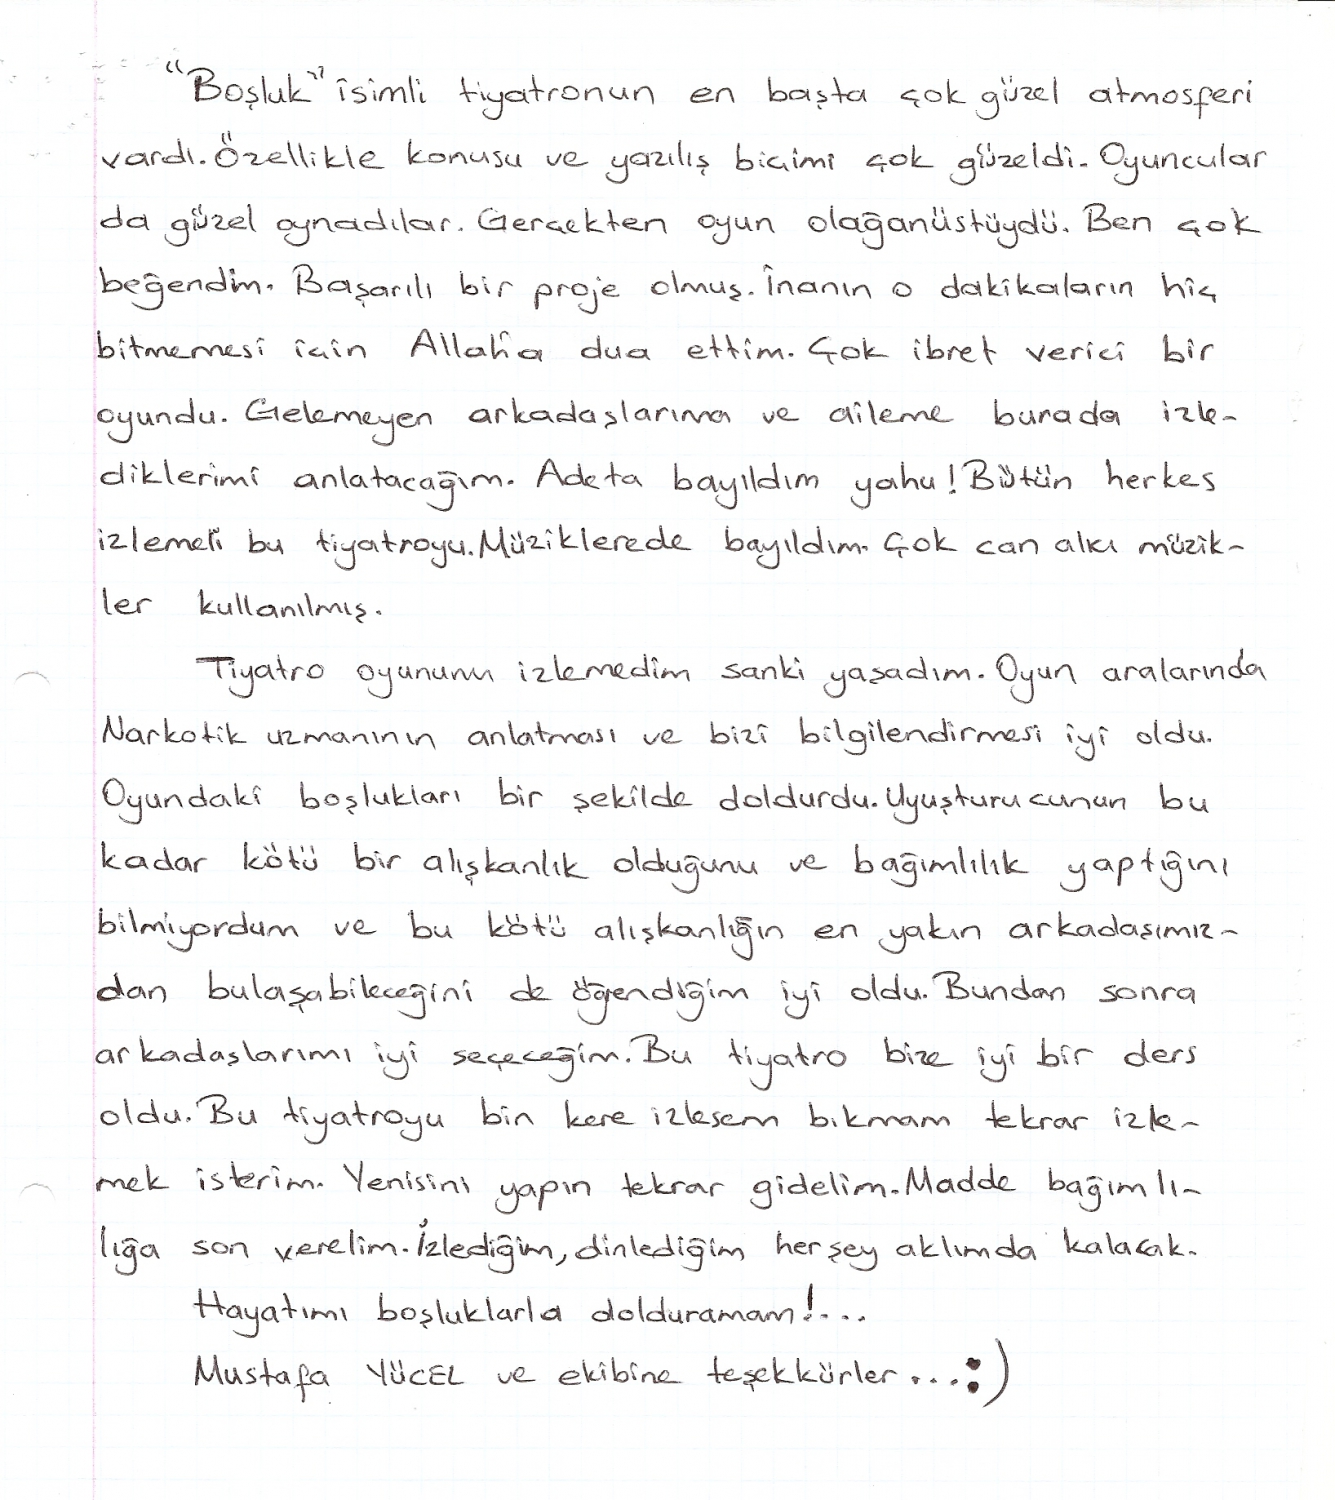 "Boşluk" isimli tiyatronun en başta çok güzel atmosferi
vardı. Özellikle konusu ve yazılış biçimi çok güzeldi. Oyuncular
da güzel oynadılar. Gerçekten oyun olağanüstüydü. Ben çok
beğendim. Başarılı bir proje olmuş. İnanın o dakikaların hiç
bitmemesi için Allah'a dua ettim. Çok ibret verici bir
oyundu. Gelemeyen arkadaşlarıma ve aileme burada izle-
diklerimi anlatacağım. Adeta bayıldım yahu! Bütün herkes
izlemeli bu tiyatroyu. Müziklerede bayıldım. Çok can alıcı müzik-
ler kullanılmış.
Tiyatro oyununu izlemedim sanki yaşadım. Oyun aralarında
Narkotik uzmanının anlatması ve bizi bilgilendirmesi iyi oldu.
Oyundaki boşlukları bir şekilde doldurdu. Uyuşturucunun bu
kadar kötü bir alışkanlık olduğunu ve bağımlılık yaptığını
bilmiyordum ve bu kötü alışkanlığın en yakın arkadaşımız-
dan bulaşabileceğini de öğendiğim iyi oldu. Bundan sonra
arkadaşlarımı iyi seçeceğim. Bu tiyatro bize iyi bir ders
oldu. Bu tiyatroyu bin kere izlesem bıkmam tekrar izle-
mek isterim. Yenisini yapın tekrar gidelim. Madde bağımlı-
lığa son verelim. İzlediğim, dinlediğim her şey aklımda kalacak.
Hayatımı boşluklarla dolduramam!...
Mustafa YÜCEL ve ekibine teşekkürler...:)